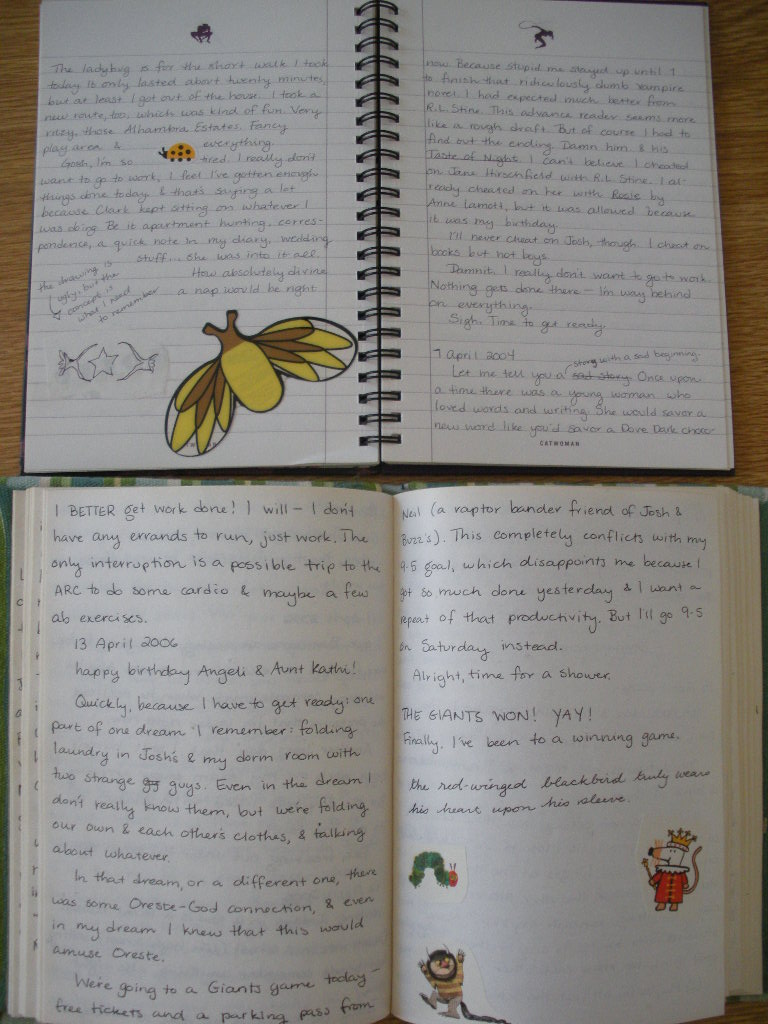 The ladybug is for the short walk I took
today. It only lasted about twenty minutes,
but at least I got out of the house. I took a
new route, too, which was kind of fun. Very
ritzy, those Alhambra Estates. Fancy
play area & everything.
Gosh, I'm so tired. I really don't
want to go to work, I feel I've gotten enough
things done today, & that's saying a lot
because Clark kept sitting on whatever I
was doing. Be it apartment hunting, corres-
pondence, a quick note in my diary, wedding
stuff... she was into it all.
How absolutely divine
a nap would be right
the drawing is
ugly, but the
concept is
what I need
to remember
now. Because stupid me stayed up until 1
to finish that ridiculously dumb vampire
novel. I had expected much better from
R.L. Stine. This advance reader seems more
like a rough draft. But of course I had to
find out the ending. Damn him & his
Taste of Night. I can't believe I cheated
on Jane Hirschfield with R.L. Stine. I al-
ready cheated on her with Rosie by
Anne Lamott, but it was allowed because
it was my birthday.
I'll never cheat on Josh, though. I cheat on
books but not boys.
Dammit, I really don't want to go to work.
Nothing gets done there – I'm way behind
on everything.
Sigh. Time to get ready.
7 April 2004
story with a sad beginning.
Let me tell you a sad story. Once upon
a time there was a young woman who
loved words and writing. She would savor a
new word like you'd savor a Dove Dark choco-
CATWOMAN
I BETTER get work done! I will – I don't
have any errands to run, just work. The
only interruption is a possible trip to the
ARC to do some cardio & maybe a few
ab exercises.
13 April 2006
happy birthday Angeli & Aunt Kathi!
Quickly, because I have to get ready: one
part of one dream I remember: folding
laundry in Josh's & my dorm room with
two strange guys. Even in the dream I
don't really know them, but we're folding
our own & each other's clothes, & talking
about whatever.
In that dream, or a different one, there
was some Oreste-God connection, & even
in my dream I knew that this would
amuse Oreste.
We're going to a Giants game today –
free tickets and a parking pass from
Neil (a raptor bander friend of Josh &
Buzz's). This completely conflicts with my
9-5 goal, which disappoints me because I
got so much done yesterday & I want a
repeat of that productivity. But I'll go 9-5
on Saturday instead.
Alright, time for a shower.
THE GIANTS WON! YAY!
Finally, I've been to a winning game.
the red-winged blackbird truly wears
his heart upon his sleeve.